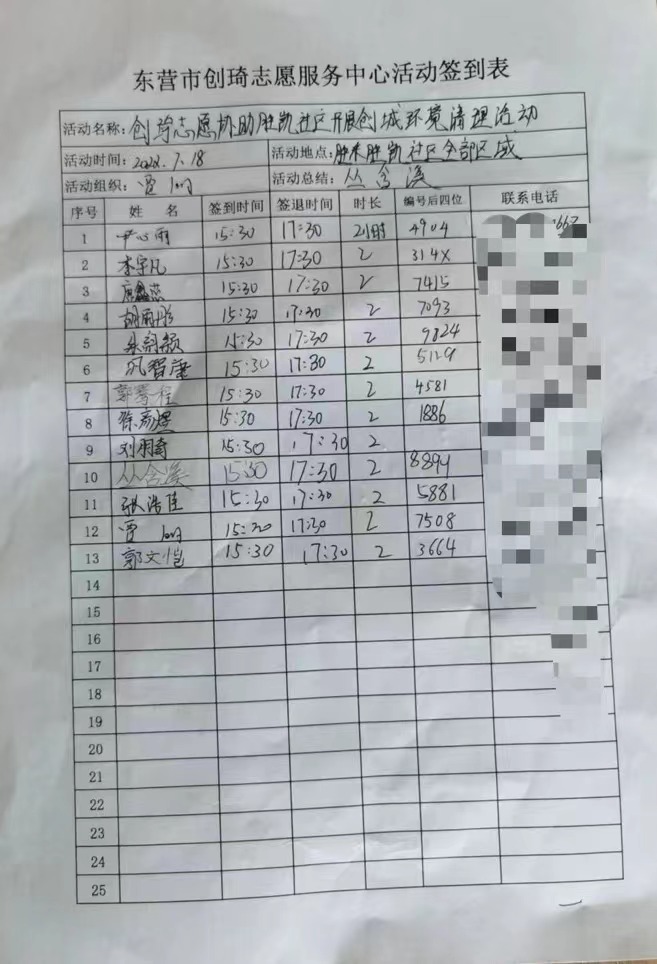 东营市创琦志愿服务中心活动签到表
活动名称：创琦志愿协助胜凯社区开展创城环境清理活动
活动时间：2022.7.18 活动地点：胜来胜凯社区全部区域
活动组织：曹 活动总结：丛含溪
序号 姓 名 签到时间 签退时间 时长 编号后四位 联系电话
1 尹心雨 15:30 17:30 2小时 4904
2 李宇凡 15:30 17:30 2 314X
3 15:30 17:30 2 7415
4 胡雨彤 15:30 17:30 2 7093
5 15:30 17:30 2 9824
6 15:30 17:30 2 5129
7 15:30 17:30 2 4581
8 徐 15:30 17:30 2 1886
9 刘雨奇 15:30 17:30 2
10 丛含溪 15:30 17:30 2 8894
11 张浩佳 15:30 17:30 2 5881
12 曹 15:30 17:30 2 7508
13 郭文恺 15:30 17:30 2 3664
14
15
16
17
18
19
20
21
22
23
24
25